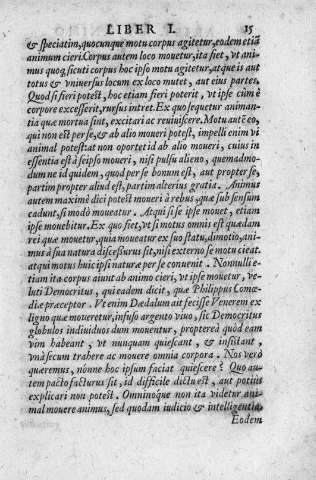 LIBER I. 15
& speciatim, quocunque motu corpus agitetur, eodem etiā
animum cieri. Corpus autem loco mouetur, ita fiet, vt ani-
mus quoq; sicuti corpus hoc ipso motu agitetur, atque is aut
totus & vniuersus locum ex loco mutet, aut eius partes.
Quod si fieri potest, hoc etiam fieri poterit, vt ipse cùm è
corpore excesserit, rursus intret. Ex quo sequetur animan-
tia quæ mortua sint, excitari ac reuiuiscere. Motu autē eo,
qui non est per se, & ab alio moueri potest, impelli enim vi
animal potest: at non oportet id ab alio moueri, cuius in
essentia est à seipso moueri, nisi pulsu alieno, quemadmo-
dum ne id quidem, quod per se bonum est, aut propter se,
partim propter aliud est, partim alterius gratia. Animus
autem maximè dici potest moueri à rebus, quæ sub sensum
cadunt, si modò moueatur. Atqui si se ipse mouet, etiam
ipse mouebitur. Ex quo fiet, vt si motus omnis est quædam
rei quæ mouetur, quia moueatur ex suo statu, dimotio, ani-
mus à sua natura discessurus sit, nisi externo se motu cieat.
atqui motus huic ipsi naturæ per se conuenit. Nonnulli e-
tiam ita corpus aiunt ab animo cieri, vt ipse mouetur, ve-
luti Democritus, qui eadem dicit, quæ Philippus Comœ-
diæ præceptor. Vt enim Dædalum ait fecisse Venerem ex
ligno quæ moueretur, infuso argento viuo, sic Democritus
globulos indiuiduos dum mouentur, proptereà quòd eam
vim habeant, vt nunquam quiescant, & insistant,
vnà secum trahere ac mouere omnia corpora. Nos verò
quæremus, nonne hoc ipsum faciat quiescere? Quo au-
tem pacto facturus sit, id difficile dictu est, aut potiùs
explicari non potest. Omninoque non ita videtur ani-
mal mouere animus, sed quodam iudicio & intelligentia.
Eodem